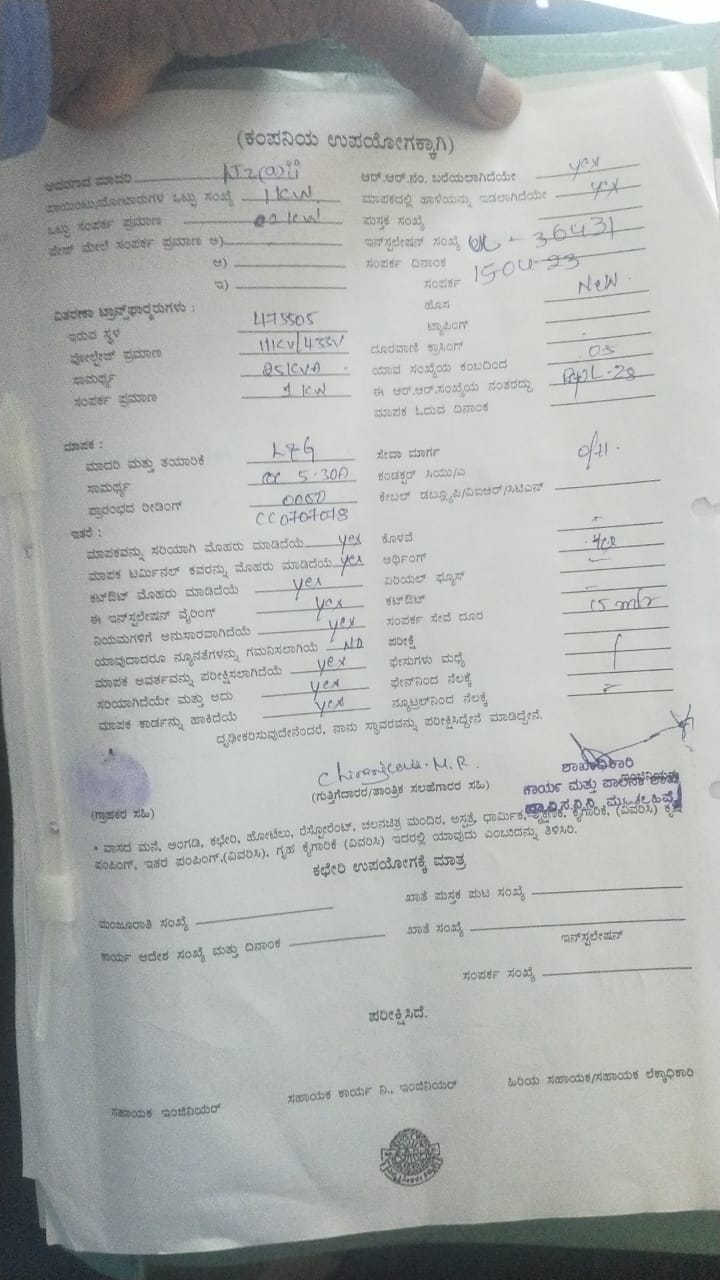 (ಕಂಪನಿಯ ಉಪಯೋಗಕ್ಕಾಗಿ)
ಆವರಣದ ಮಾದರಿ
ಆರ್.ಆರ್.ನಂ. ಬರೆಯಲಾಗಿದೆಯೇ yes
ಪಾಯಿಂಟು/ಮೋಟಾರುಗಳ ಒಟ್ಟು ಸಂಖ್ಯೆ 1KW
ಮಾಪಕದಲ್ಲಿ ಹಾಳೆಯನ್ನು ಇಡಲಾಗಿದೆಯೇ yes
ಒಟ್ಟು ಸಂಪರ್ಕ ಪ್ರಮಾಣ
ಪುಸ್ತಕ ಸಂಖ್ಯೆ
ಪೇಸ್ ಮೇಲೆ ಸಂಪರ್ಕ ಪ್ರಮಾಣ ಅ)
ಇನ್‌ಸ್ಟಲೇಷನ್ ಸಂಖ್ಯೆ 36431
ಆ)
ಸಂಪರ್ಕ ದಿನಾಂಕ 1504-23
ಇ)
ಸಂಪರ್ಕ
ಹೊಸ New
ವಿತರಣಾ ಟ್ರಾನ್ಸ್‌ಫಾರ್ಮರುಗಳು :
ಟ್ಯಾಪಿಂಗ್
ಇರುವ ಸ್ಥಳ 475505
ದೂರವಾಣಿ ಕ್ರಾಸಿಂಗ್
ವೋಲ್ಟೇಜ್ ಪ್ರಮಾಣ 11KV/433V
ಯಾವ ಸಂಖ್ಯೆಯ ಕಂಬದಿಂದ 05
ಸಾಮರ್ಥ್ಯ 25KVA
ಈ ಆರ್.ಆರ್.ಸಂಖ್ಯೆಯ ನಂತರದ್ದು
ಸಂಪರ್ಕ ಪ್ರಮಾಣ 1 KW
ಮಾಪಕ ಓದುವ ದಿನಾಂಕ
ಮಾಪಕ :
ಮಾದರಿ ಮತ್ತು ತಯಾರಿಕೆ L&G
ಸೇವಾ ಮಾರ್ಗ 0/H.
ಸಾಮರ್ಥ್ಯ 5-30A
ಕಂಡಕ್ಟರ್ ಸಿಯು/ಎ
ಪ್ರಾರಂಭದ ರೀಡಿಂಗ್
ಕೇಬಲ್ ಡಬ್ಲ್ಯೂಪಿ/ವಿಐಆರ್/ಸಿಟಿಎಸ್
CC0707078
ಇತರೆ :
ಮಾಪಕವನ್ನು ಸರಿಯಾಗಿ ಮೊಹರು ಮಾಡಿದೆಯೆ yes
ಕೊಳವೆ
ಮಾಪಕ ಟರ್ಮಿನಲ್ ಕವರನ್ನು ಮೊಹರು ಮಾಡಿದೆಯೆ yes
ಅರ್ಥಿಂಗ್ yes
ಕಟ್‌ಔಟ್ ಮೊಹರು ಮಾಡಿದೆಯೆ yes
ಏರಿಯಲ್ ಫ್ಯೂಸ್
ಈ ಇನ್‌ಸ್ಟಲೇಷನ್ ವೈರಿಂಗ್ yes
ಕಟ್‌ಔಟ್
ನಿಯಮಗಳಿಗೆ ಅನುಸಾರವಾಗಿದೆಯೆ yes
ಸಂಪರ್ಕ ಸೇವೆ ದೂರ 15 mtr
ಯಾವುದಾದರೂ ನ್ಯೂನತೆಗಳನ್ನು ಗಮನಿಸಲಾಗಿಯೆ NO
ಪರೀಕ್ಷೆ
ಮಾಪಕ ಅವರ್ತವನ್ನು ಪರೀಕ್ಷಿಸಲಾಗಿದೆಯೆ yes
ಫೇಸುಗಳು ಮಧ್ಯೆ
ಸರಿಯಾಗಿದೆಯೇ ಮತ್ತು ಅದು yes
ಫೇಸ್‌ನಿಂದ ನೆಲಕ್ಕೆ
ಮಾಪಕ ಕಾರ್ಡನ್ನು ಹಾಕಿದೆಯೆ yes
ನ್ಯೂಟ್ರಲ್‌ನಿಂದ ನೆಲಕ್ಕೆ
ದೃಢೀಕರಿಸುವುದೇನೆಂದರೆ, ನಾನು ಸ್ಥಾವರವನ್ನು ಪರೀಕ್ಷಿಸಿದ್ದೇನೆ ಮಾಡಿದ್ದೇನೆ.
(ಗ್ರಾಹಕರ ಸಹಿ)
(ಗುತ್ತಿಗೆದಾರರ/ತಾಂತ್ರಿಕ ಸಲಹೆಗಾರರ ಸಹಿ)
ಶಾಖಾಧಿಕಾರಿ
ಕಾರ್ಯ ಮತ್ತು ಪಾಲನಾ ಶಾಖೆ
* ವಾಸದ ಮನೆ, ಅಂಗಡಿ, ಕಛೇರಿ, ಹೋಟೆಲು, ರೆಸ್ಟೋರೆಂಟ್, ಚಲನಚಿತ್ರ ಮಂದಿರ, ಅಸ್ಪತ್ರೆ, ಧಾರ್ಮಿಕ, ಶೈಕ್ಷಣಿಕ, ಕೈಗಾರಿಕೆ, (ವಿವರಿಸಿ) ಕೃಷಿ
ಪಂಪಿಂಗ್, ಇತರ ಪಂಪಿಂಗ್,(ವಿವರಿಸಿ), ಗೃಹ ಕೈಗಾರಿಕೆ (ವಿವರಿಸಿ) ಇದರಲ್ಲಿ ಯಾವುದು ಎಂಬುದನ್ನು ತಿಳಿಸಿರಿ.
ಕಛೇರಿ ಉಪಯೋಗಕ್ಕೆ ಮಾತ್ರ
ಮಂಜೂರಾತಿ ಸಂಖ್ಯೆ
ಖಾತೆ ಪುಸ್ತಕ ಪುಟ ಸಂಖ್ಯೆ
ಕಾರ್ಯ ಆದೇಶ ಸಂಖ್ಯೆ ಮತ್ತು ದಿನಾಂಕ
ಖಾತೆ ಸಂಖ್ಯೆ
ಇನ್‌ಸ್ಟಲೇಷನ್
ಸಂಪರ್ಕ ಸಂಖ್ಯೆ
ಪರೀಕ್ಷಿಸಿದೆ.
ಸಹಾಯಕ ಇಂಜಿನಿಯರ್
ಸಹಾಯಕ ಕಾರ್ಯ ನಿ., ಇಂಜಿನಿಯರ್
ಹಿರಿಯ ಸಹಾಯಕ/ಸಹಾಯಕ ಲೆಕ್ಕಾಧಿಕಾರಿ